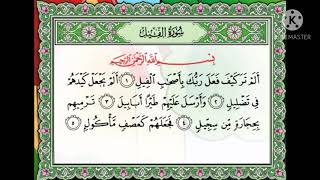 سُورَةُ الفِيلِ
بِسْمِ اللَّهِ الرَّحْمَٰنِ الرَّحِيمِ
أَلَمْ تَرَ كَيْفَ فَعَلَ رَبُّكَ بِأَصْحَٰبِ الْفِيلِ ١ أَلَمْ يَجْعَلْ كَيْدَهُمْ
فِي تَضْلِيلٍ ٢ وَأَرْسَلَ عَلَيْهِمْ طَيْرًا أَبَابِيلَ ٣ تَرْمِيهِم
بِحِجَارَةٍ مِّن سِجِّيلٍ ٤ فَجَعَلَهُمْ كَعَصْفٍ مَّأْكُولٍ ٥
KINEMASTER